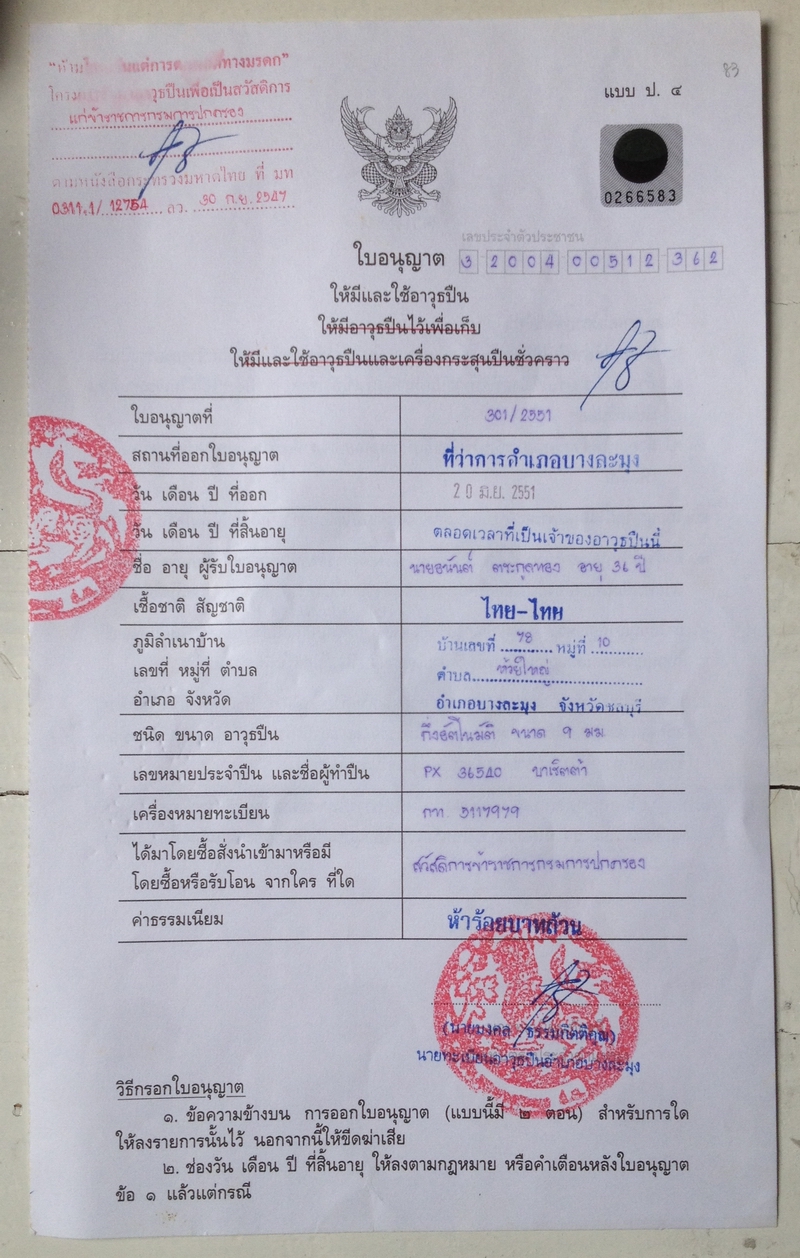 83
แบบ ป. ๔
ทางมรดก"
วุธปืนเพื่อเป็นสวัสดิการ
แก่ข้าราชการกรมการปกครอง
ตามหนังสือกระทรวงมหาดไทย ที่ มท
0311.1/ 12754 ลว. 30 ก.ย. 2547
0266583
เลขประจำตัวประชาชน
ใบอนุญาต 3 2004 00512 362
ให้มีและใช้อาวุธปืน
ให้มีอาวุธปืนไว้เพื่อเก็บ
ให้มีและใช้อาวุธปืนและเครื่องกระสุนปืนชั่วคราว
ใบอนุญาตที่ 301/2551
สถานที่ออกใบอนุญาต ที่ว่าการอำเภอบางละมุง
วัน เดือน ปี ที่ออก 20 มิ.ย. 2551
วัน เดือน ปี ที่สิ้นอายุ ตลอดเวลาที่เป็นเจ้าของอาวุธปืนนี้
ชื่อ อายุ ผู้รับใบอนุญาต อายุ 36 ปี
เชื้อชาติ สัญชาติ ไทย-ไทย
ภูมิลำเนาบ้าน บ้านเลขที่ 78 หมู่ที่ 10
เลขที่ หมู่ที่ ตำบล ตำบล ห้วยใหญ่
อำเภอ จังหวัด อำเภอบางละมุง จังหวัดชลบุรี
ชนิด ขนาด อาวุธปืน กึ่งอัตโนมัติ ขนาด 9 มม
เลขหมายประจำปืน และชื่อผู้ทำปืน PX 3654D บาเร็ตต้า
เครื่องหมายทะเบียน กท 5117979
ได้มาโดยซื้อสั่งนำเข้ามาหรือมี สวัสดิการข้าราชการกรมการปกครอง
โดยซื้อหรือรับโอน จากใคร ที่ใด
ค่าธรรมเนียม ห้าร้อยบาทถ้วน
(นายมงคล ธรรมกิตติคุณ)
นายทะเบียนอาวุธปืนอำเภอบางละมุง
วิธีกรอกใบอนุญาต
๑. ข้อความข้างบน การออกใบอนุญาต (แบบนี้มี ๒ ตอน) สำหรับการใด
ให้ลงรายการนั้นไว้ นอกจากนี้ให้ขีดฆ่าเสีย
๒. ช่องวัน เดือน ปี ที่สิ้นอายุ ให้ลงตามกฎหมาย หรือคำเตือนหลังใบอนุญาต
ข้อ ๑ แล้วแต่กรณี